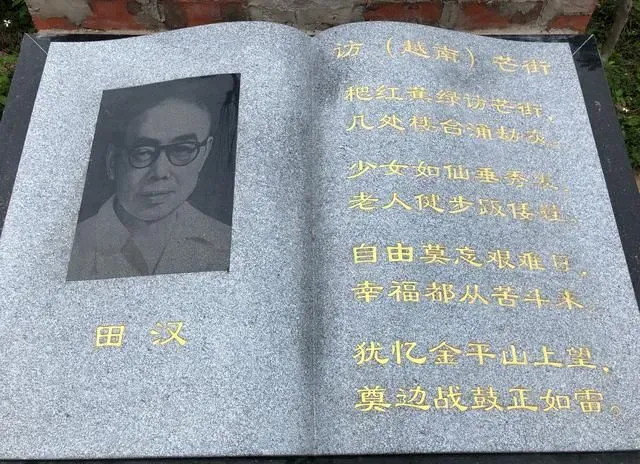 访（越南）芒街
杷红蕉绿访芒街，
几处楼台涌劫灰。
少女如仙垂秀发，
老人健步趿倭鞋。
自由莫忘艰难日，
幸福都从苦斗来。
犹忆金平山上望，
奠边战鼓正如雷。
田汉